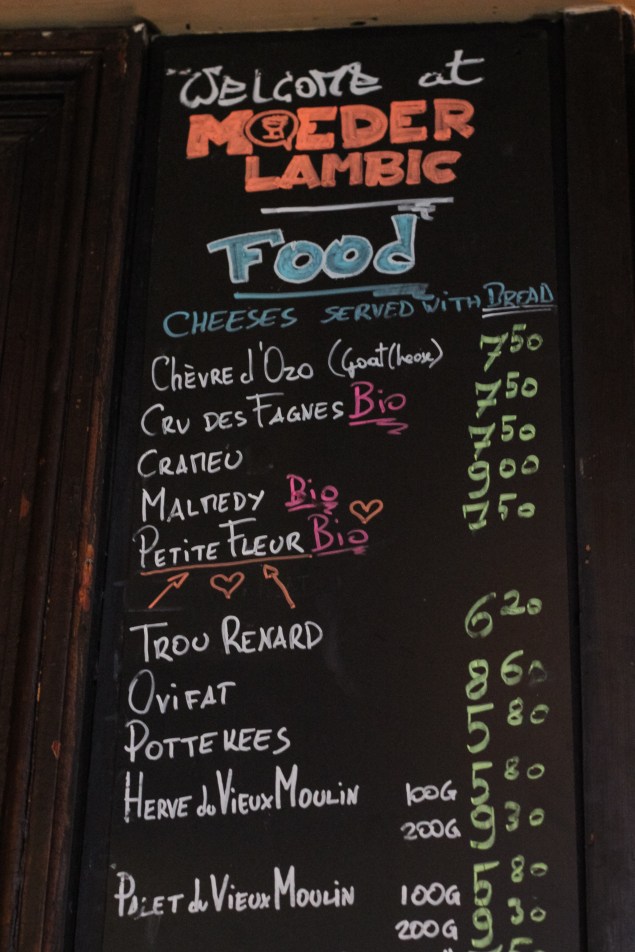 Welcome at
MOEDER
LAMBIC
Food
CHEESES SERVED WITH BREAD
Chèvre d'Ozo (Goat Cheese) 7 50
CRU DES FAGNES Bio 7 50
CRAMEU 7 50
MALMEDY Bio 9 00
PETITE FLEUR Bio 7 50
TROU RENARD 6 20
OVIFAT 8 60
POTTEKEES 5 80
HERVE du VIEUX MOULIN 100G 5 80
200G 9 30
PALET du VIEUX MOULIN 100G 5 80
200G 9 30